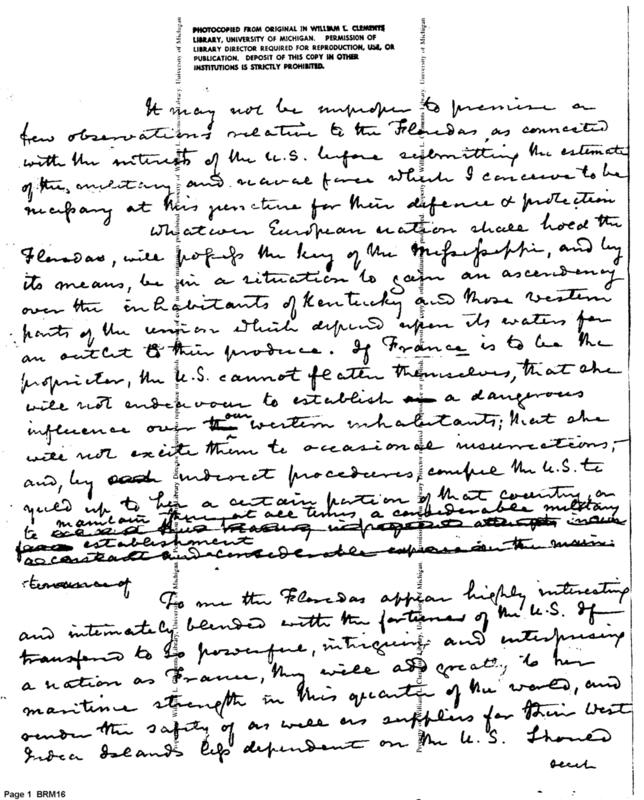 PHOTOCOPIED FROM ORIGINAL IN WILLIAM L. CLEMENTS
LIBRARY, UNIVERSITY OF MICHIGAN. PERMISSION OF
LIBRARY DIRECTOR REQUIRED FOR REPRODUCTION, USE, OR
PUBLICATION. DEPOSIT OF THIS COPY IN OTHER
INSTITUTIONS IS STRICTLY PROHIBITED.
It may not be improper to premise a
few observations relative to the Floredas, as connected
with the interests of the U.S. before submitting the estimate
of the military and naval force which I conceive to be
necessary at this juncture for their defence & protection
Whatever European nation shall hold the
Floredas, will possess the key of the Mississippi, and by
its means, be in a situation to gain an ascendency
over the inhabitants of Kentucky and those western
parts of the union which depend upon its waters for
an outlet to their produce. If France is to be the
proprietor, the U.S. cannot flatten themselves, that she
will not endeavour to establish a dangerous
influence over our western inhabitants; that she
will not excite them to occasional insurrections,
and, by indirect procedures, compel the U.S. to
yield up to her a certain portion of that country, or
to maintain at all times a considerable military
establishment
To me the Floredas appear highly interesting
and intimately blended with the fortunes of the U.S. If
transferred to so powerful, intriguing and enterprising
a nation as France, they will add greatly to her
maritime strength in this quarter of the world, and
render the safety of as well as supplies for their West
India Islands less dependent on the U.S. Should
such
Page 1 BRM16